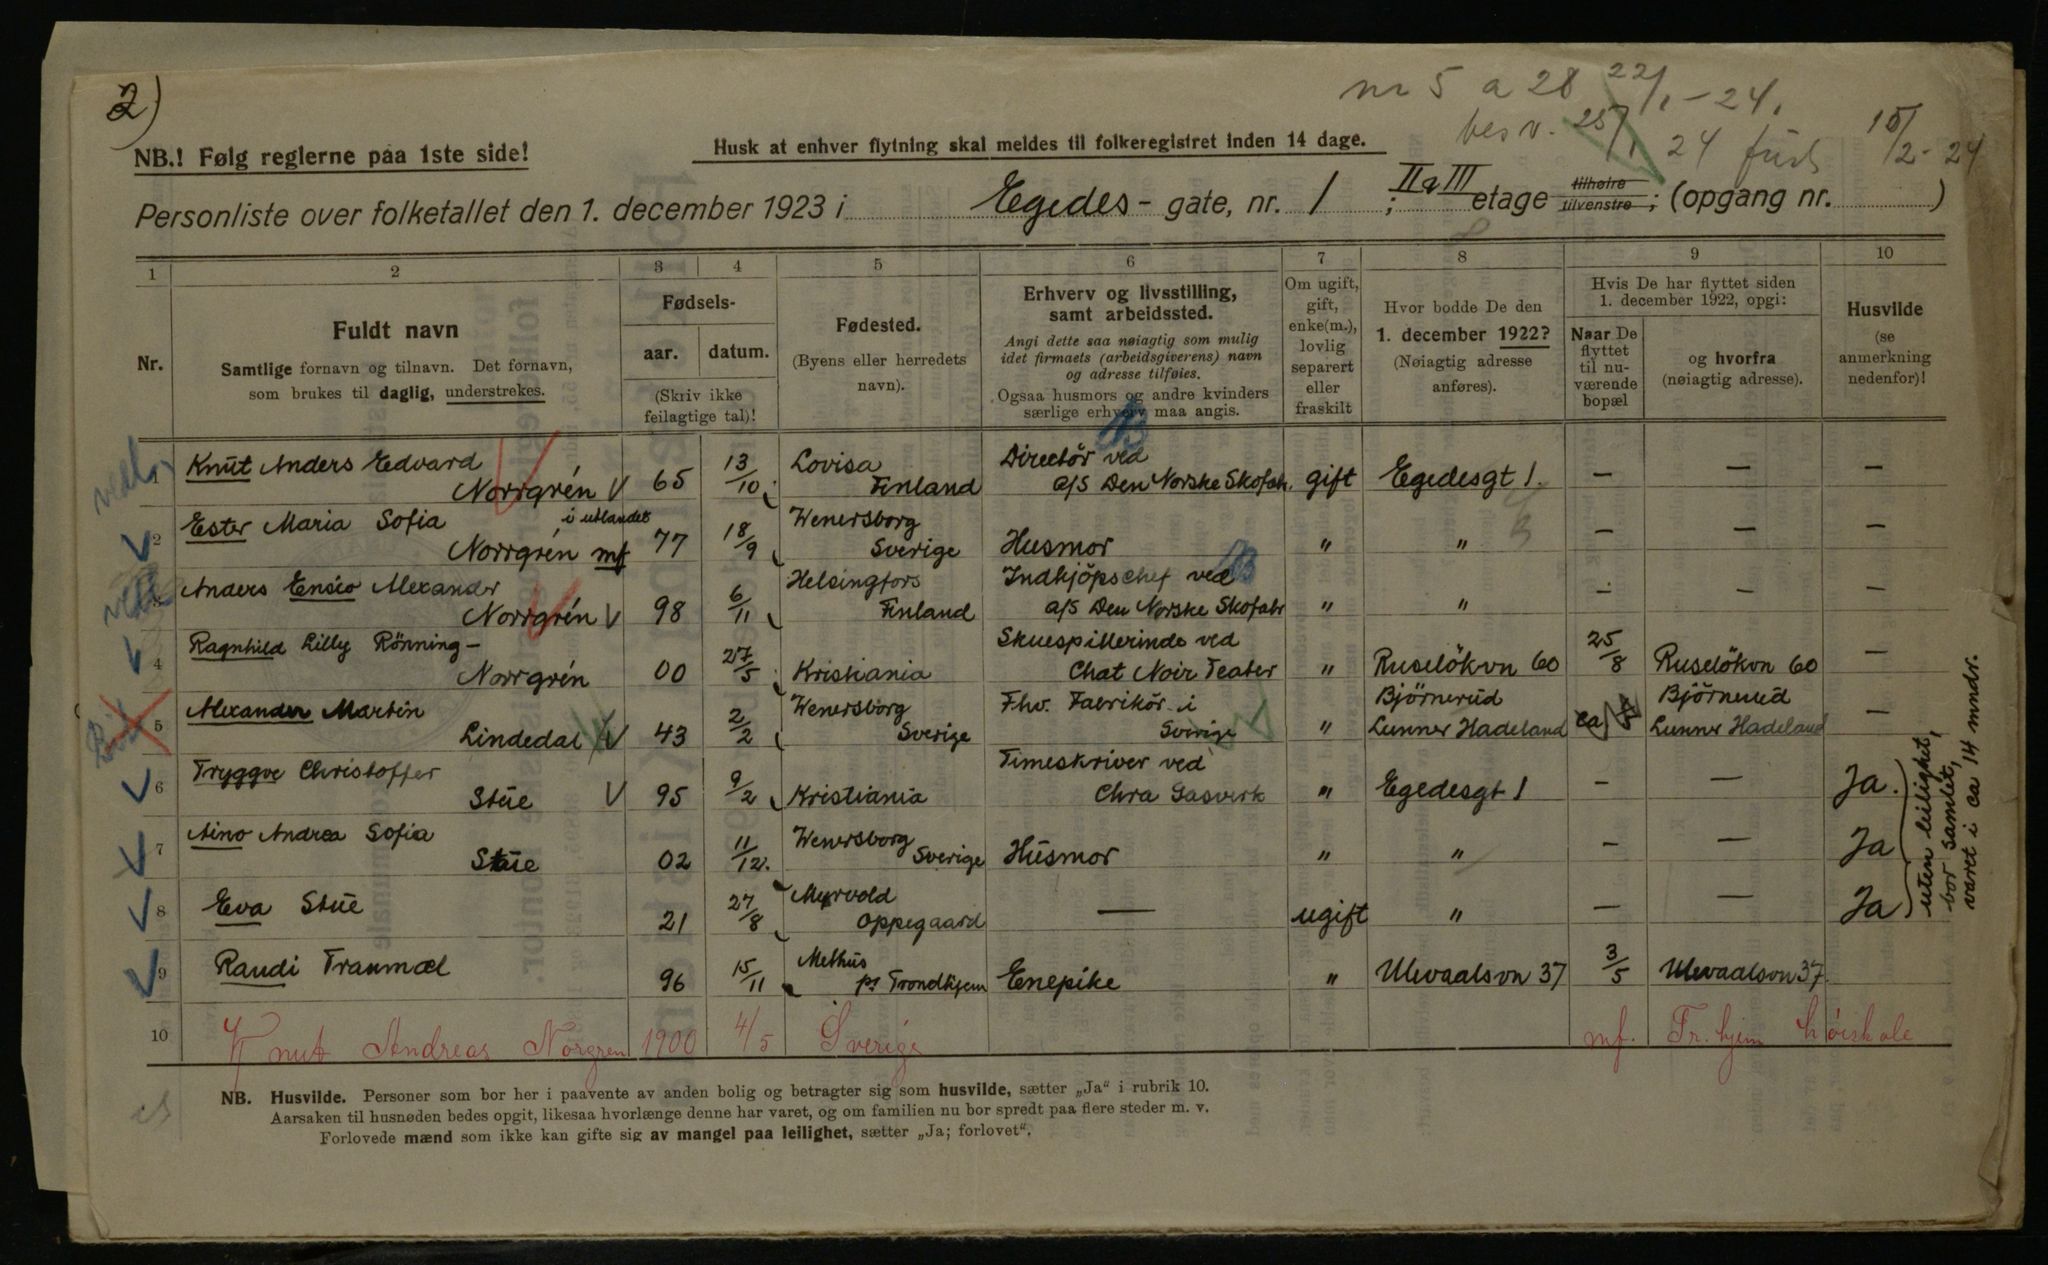 2)
nr 5 a 28 22/1 - 24.
besv. 25/1 24
15/2 - 24
NB.! Følg reglerne paa 1ste side!
Husk at enhver flytning skal meldes til folkeregistret inden 14 dage.
Personliste over folketallet den 1. december 1923 i Egedes - gate, nr. 1 ; II & III etage tilhøire tilvenstre ; (opgang nr. )
1 2 3 4 5 6 7 8 9 10
Nr.
Fuldt navn
Samtlige fornavn og tilnavn. Det fornavn,
som brukes til daglig, understrekes.
Fødsels-
aar. datum.
(Skriv ikke
feilagtige tal)!
Fødested.
(Byens eller herredets
navn).
Erhverv og livsstilling,
samt arbeidssted.
Angi dette saa nøiagtig som mulig
idet firmaets (arbeidsgiverens) navn
og adresse tilføies.
Ogsaa husmors og andre kvinders
særlige erhverv maa angis.
Om ugift,
gift,
enke(m.),
lovlig
separert
eller
fraskilt
Hvor bodde De den
1. december 1922?
(Nøiagtig adresse
anføres).
Hvis De har flyttet siden
1. december 1922, opgi:
Naar De
flyttet
til nu-
værende
bopæl
og hvorfra
(nøiagtig adresse).
Husvilde
(se
anmerkning
nedenfor)!
1 Knut Anders Edvard
Norrgrén V 65 13/10 Lovisa Finland Directör ved a/s Den Norske Skofabr. gift Egedesgt 1. — — —
2 Ester Maria Sofia i utlandet
Norrgrén mf 77 18/9 Wenersborg Sverige Husmor " " — — —
3 Anders Ensio Alexander
Norrgrén V 98 6/11 Helsingfors Finland Indkjöpschef ved a/s Den Norske Skofabr " " — — —
4 Ragnhild Lilly Rönning -
Norrgrén 00 27/5 Kristiania Skuespillerinde ved Chat Noir Teater " Ruselökvn 60 25/8 Ruselökvn 60 —
5 Alexander Martin
Lindedal V 43 2/2 Wenersborg Sverige Fhv. Fabrikör i Sverige " Björnerud Lunner Hadeland ca Björnerud Lunner Hadeland —
6 Tryggve Christoffer
Stüe V 95 9/2 Kristiania Timeskriver ved Chra Gasverk " Egedesgt 1 — — Ja.
7 Aino Andrea Sofia
Stüe 02 11/12. Wenersborg Sverige Husmor " " — — Ja
8 Eva Stüe 21 27/8 Myrvold Oppegaard — ugift " — — Ja
uten leilighet,
bor samlet,
varet i ca 14 mndr.
9 Randi Tranmæl 96 15/11 Melhus pr Trondhjem Enepike " Ulevaalsvn 37 3/5 Ulevaalsvn 37.
10 Knut Andreas Norgren 1900 4/5 Sverige mf. Tr.hjem høiskole
NB. Husvilde. Personer som bor her i paavente av anden bolig og betragter sig som husvilde, sætter „Ja" i rubrik 10.
Aarsaken til husnøden bedes opgit, likesaa hvorlænge denne har varet, og om familien nu bor spredt paa flere steder m. v.
Forlovede mænd som ikke kan gifte sig av mangel paa leilighet, sætter „Ja; forlovet".